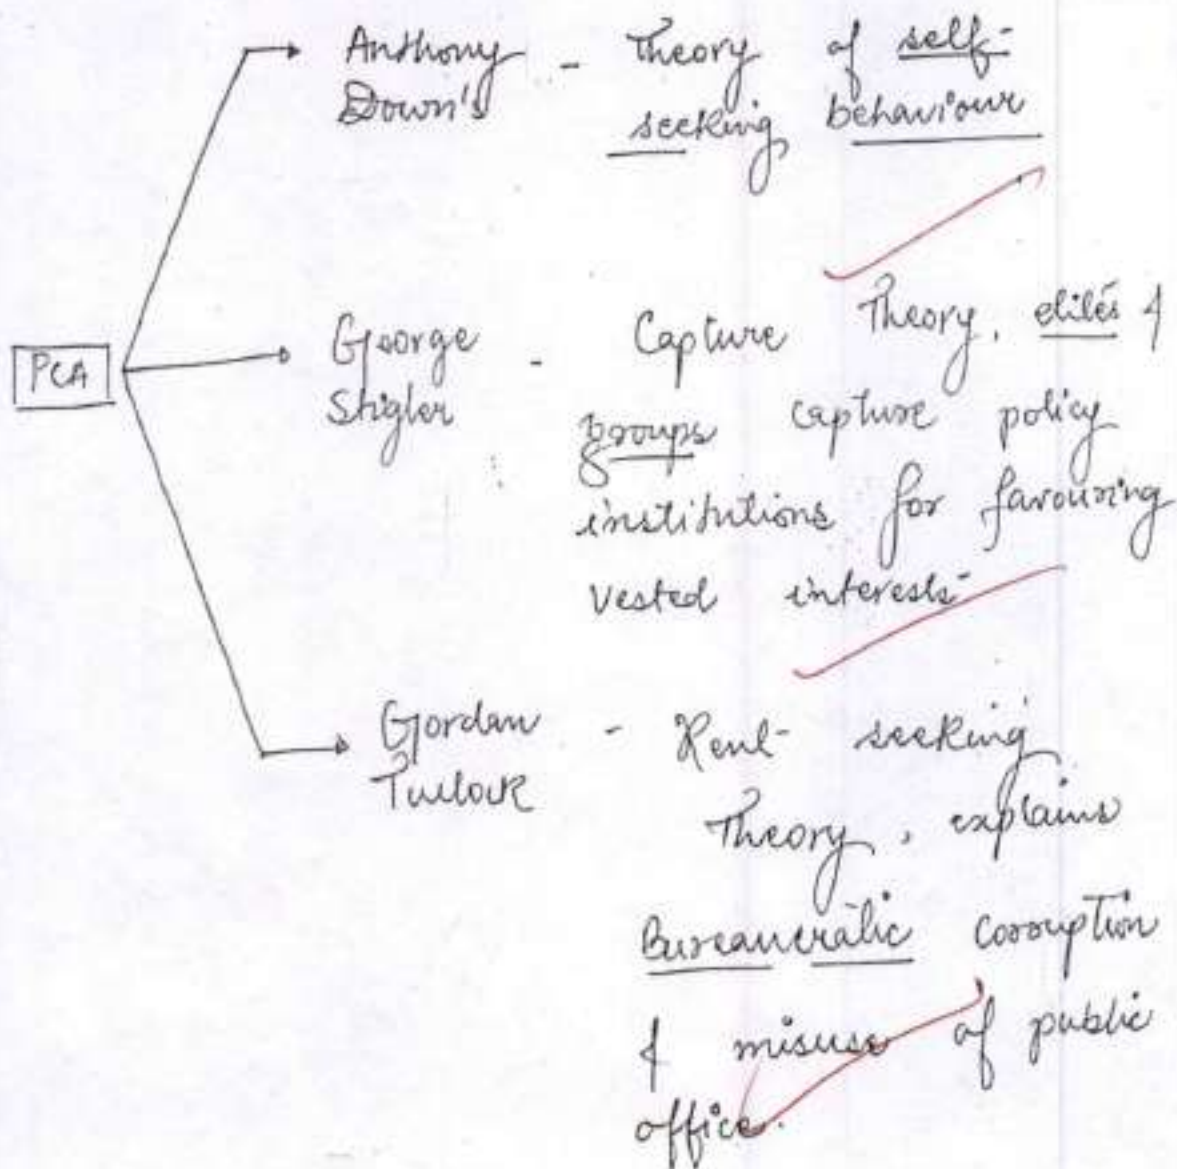 Anthony Down's - Theory of self-
seeking behaviour
PCA
George Stigler - Capture Theory, elites &
groups capture policy
institutions for favouring
vested interests
Gordan Tullock - Rent seeking
Theory, explains
Bureaucratic corruption
& misuse of public
office.